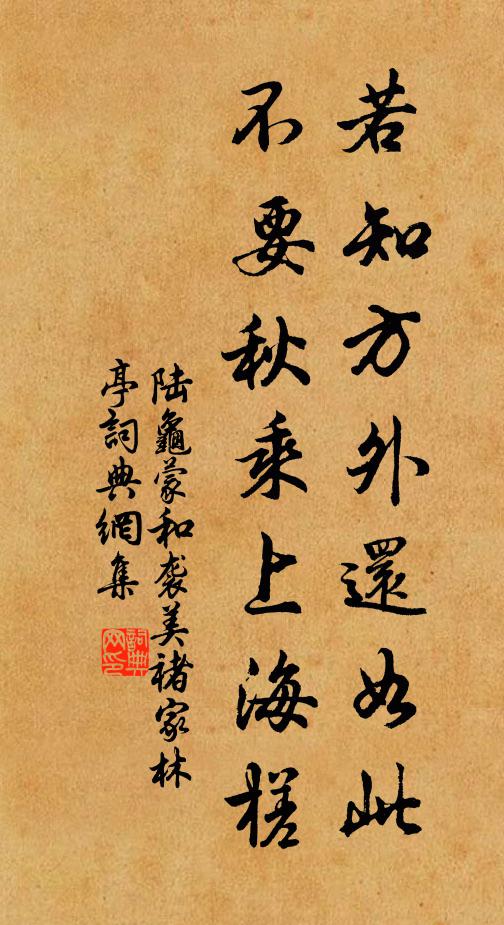 若知方外還如此
不要秋乘上海槎
陆龜蒙和袭美褚家林
亭詞典網集
詞典
网印